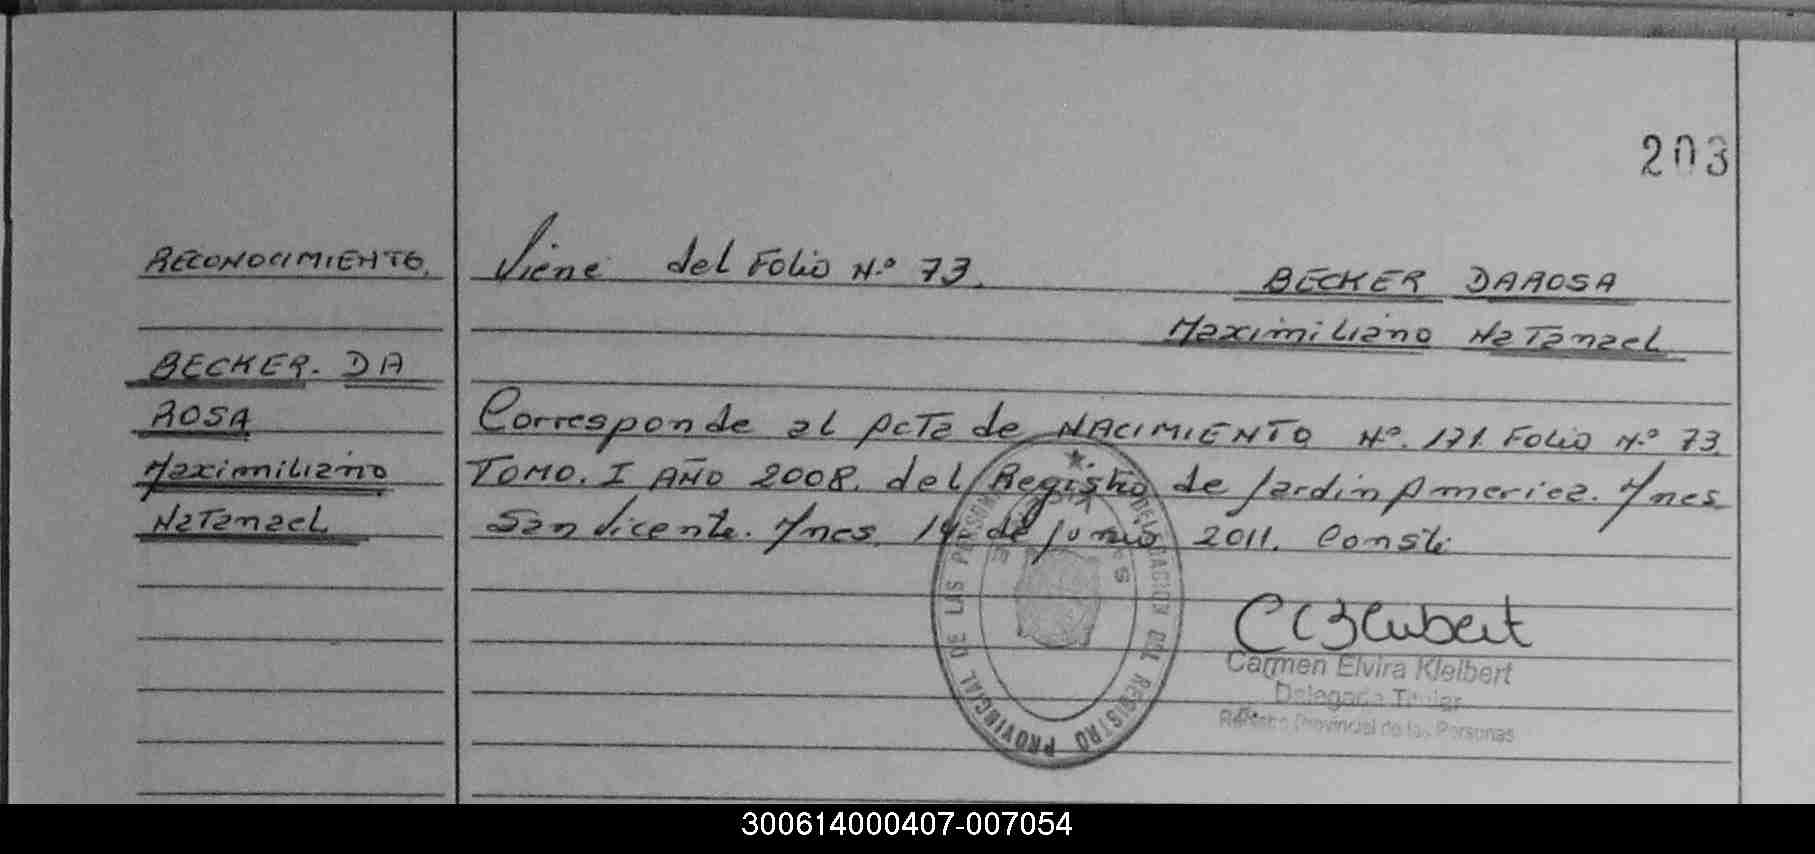 203
RECONOCIMIENTO.
Viene del Folio N.º 73.
BECKER DAROSA
Maximiliano Natanael
BECKER. DA
ROSA
Maximiliano
Natanael
Corresponde al Acta de NACIMIENTO Nº. 171. Folio N.º 73.
TOMO. I AÑO 2008. del Registro de Jardin America. Mnes
San Vicente. Mnes. 14 de Junio 2011. Conste
REGISTRO PROVINCIAL DE LAS PERSONAS
DELEGACION DEL
Carmen Elvira Kleibert
Delegada Titular
Registro Provincial de las Personas
300614000407-007054